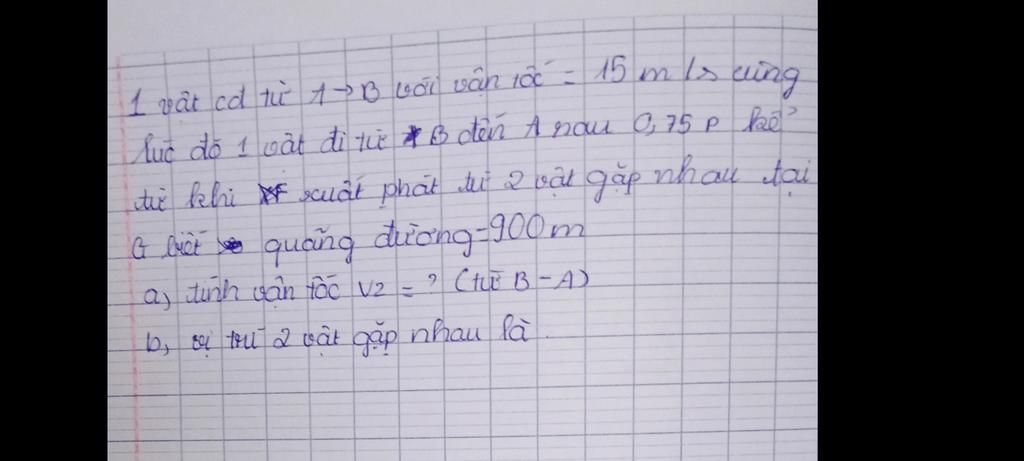 1 vật cđ từ A → B với vận tốc = 15 m/s cùng
lúc đó 1 vật đi từ B đến A sau 0,75 p kể
từ khi xuất phát từ 2 vật gặp nhau tại
G biết quãng đường = 900m
a, tính vận tốc V2 = ? (từ B - A)
b, vị trí 2 vật gặp nhau là.